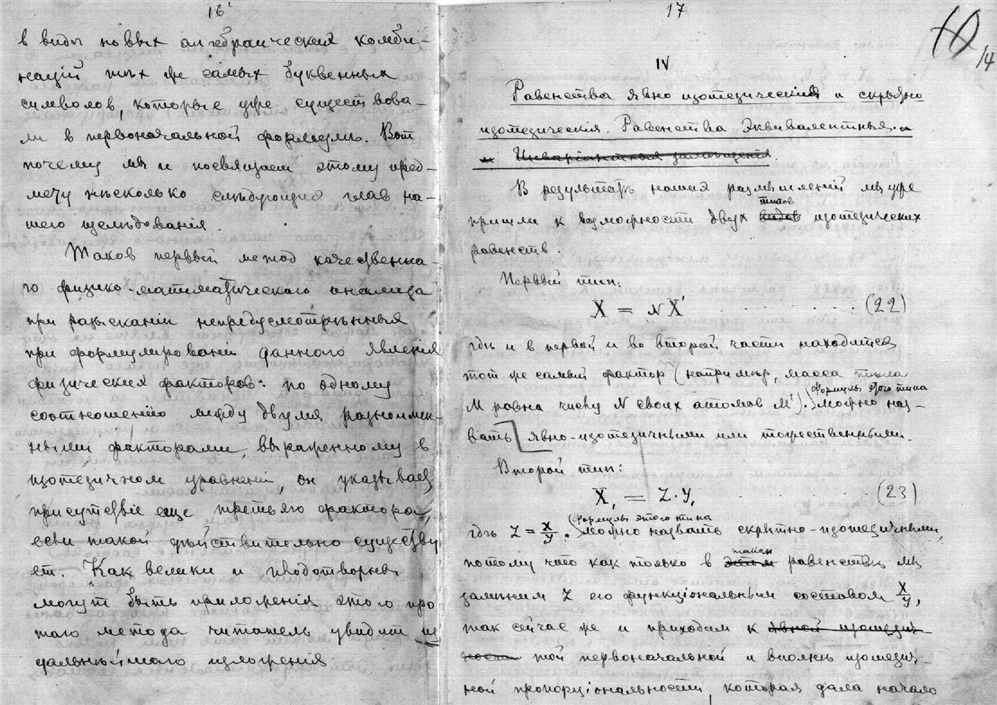 16
в виды новых алгебраическия комби-
націй тѣх же самых буквенных
символов, которые уже существова-
ли в первоначальной формулѣ. Вот
почему мы и посвящаем этому пред-
мету нѣсколько слѣдующих глав на-
шего изслѣдованія.
Таков первый метод качественна-
го физико-математическаго анализа
при разысканіи непредусмотрѣнных
при формулированіи даннаго явленія
физическия факторов: по одному
соотношенію между двумя разноимен-
ными факторами, выраженному в
изотезичном уравненіи, он указывает
присутствіе еще третьяго фактора,
если такой дѣйствительно существу-
ет. Как велики и плодотворны
могут быть приложенія этого про-
таго метода читатель увидит из
дальнѣйшаго изложенія
17
10
14
IV
Равенства явно изотезическія и скрытно
изотезическія. Равенства Эквивалентныя. и
и Инваріантныя замѣщенія
В результатѣ наших размышленій мы уже
пришли к возможности двух видов типов изотезических
равенств.
Первый тип:
X = NX' (22)
гдѣ и в первой и во второй части находится
тот же самый фактор (напримѣр, масса тѣла
М равна числу N своих атомов М'). Формулы этого типа можно наз-
вать явно-изотезичными или тожественными.
Второй тип:
X₁ = Z·Y₁ (23)
гдѣ Z = X/Y. Формулы этого типа можно назвать скрытно-изотезичными,
потому что как только в этом таком равенствѣ мы
замѣним Z его функціональным составом X/Y,
так сейчас же и приходим к явной изотезич
ности той первоначальной и вполнѣ изотезич-
ной пропорціональности, которая дала начало